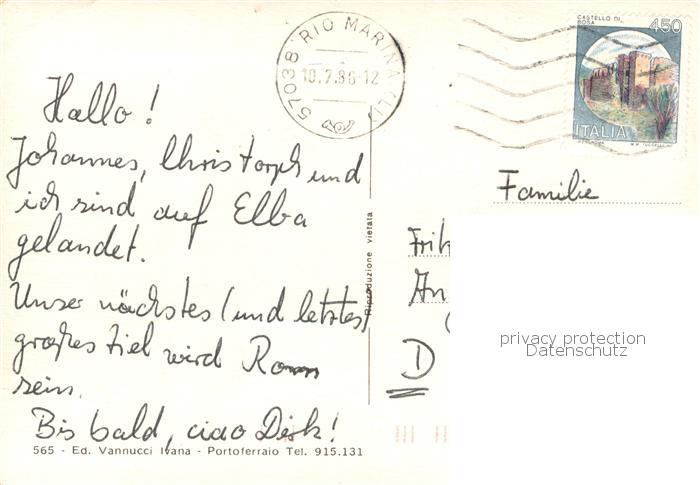 Hallo!
Johannes, Christoph und
ich sind auf Elba
gelandet.
Unser nächstes (und letztes)
großes Ziel wird Rom
sein.
Bis bald, ciao Dirk!
565 - Ed. Vannucci Ivana - Portoferraio Tel. 915.131
Riproduzione vietata
57038 RIO MARINA (LI)
10.7.86-12
CASTELLO DI
ROSA
450
ITALIA
Familie
D
privacy protection
Datenschutz